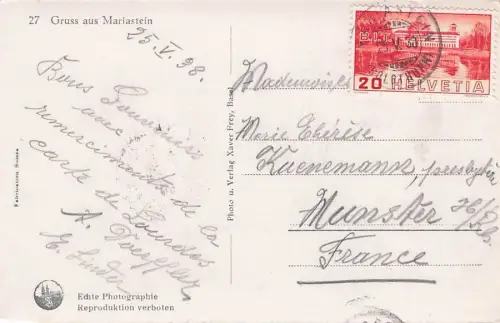 27 Gruss aus Mariastein
25. V. 38.
Bons Souvenirs
avec
remerciements de la
carte de Lourdes
Fabrication Suisse
Echte Photographie
Reproduktion verboten
Photo u. Verlag Xaver Frey, Bas
B.I.T.
20 HELVETIA
Mademoiselle
Marie Thérèse
Kuenemann, presbytère
Munster H/Rh.
France